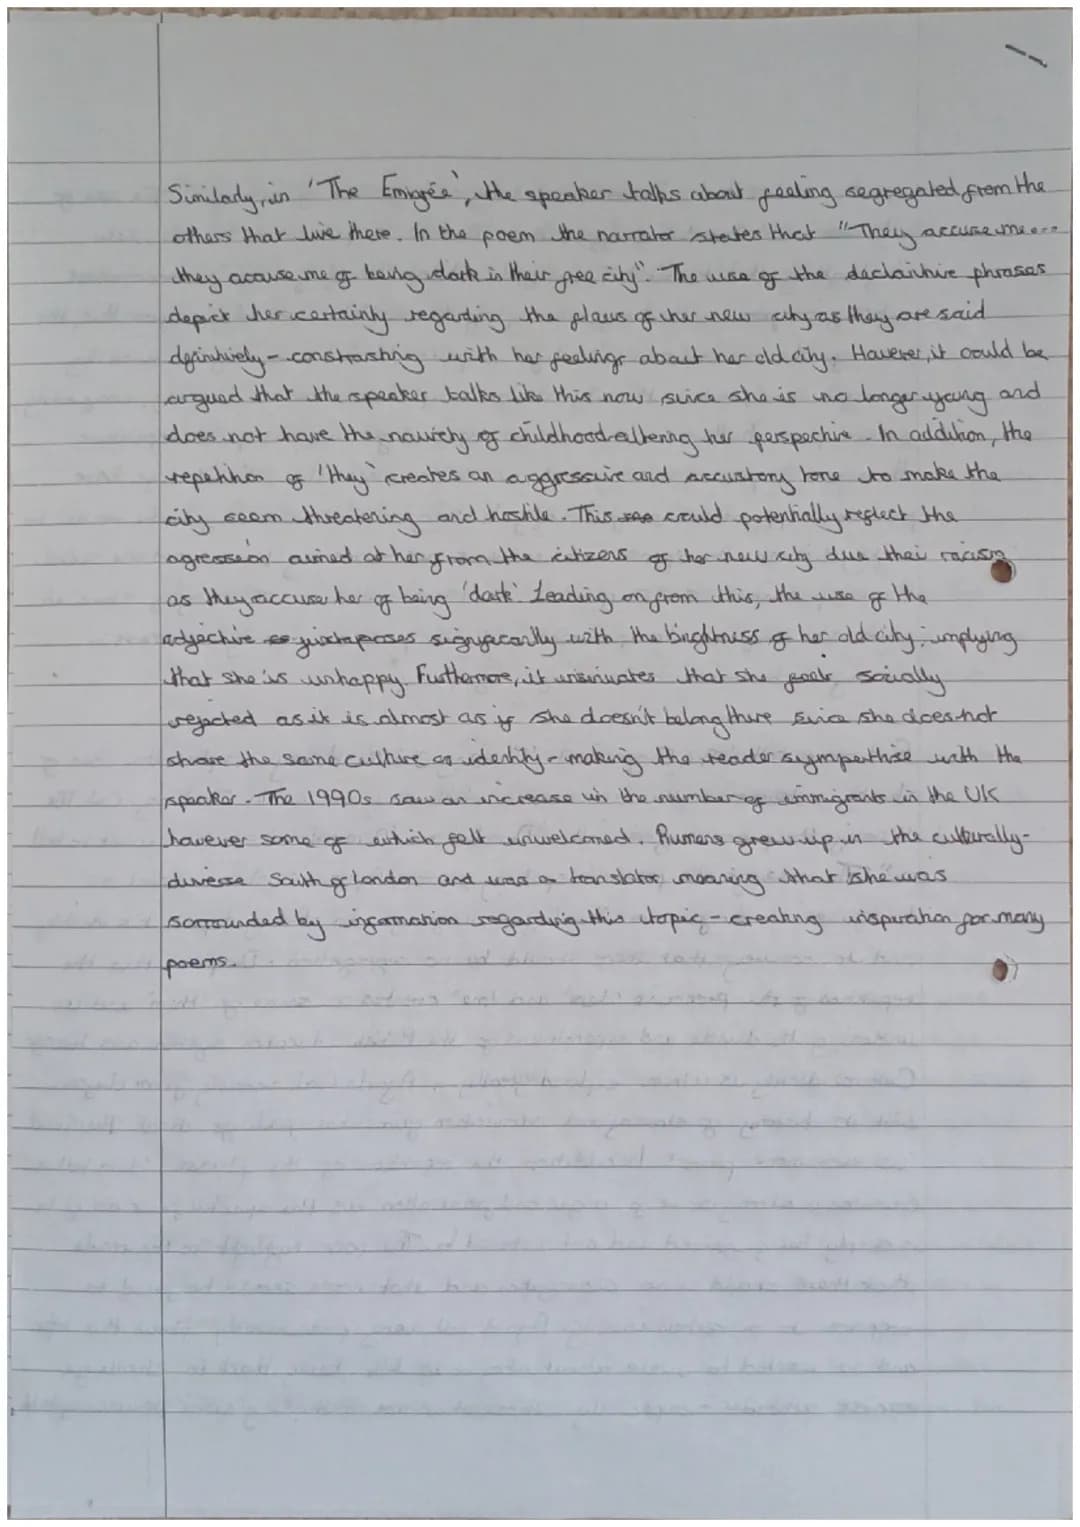 Similarly, in 'The Emigrée', the speaker talks about feeling segregated from the
others that live there. In the poem the narrator states that "They accuse me...
they accuse me of being dark in their free city". The use of the declaritive phrases
depict her certainty regarding the flaws of her new city as they are said
definitively - constrasting with her feelings about her old city. However, it could be
argued that the speaker talks like this now since she is no longer young and
does not have the naivety of childhood altering her perspective. In addition, the
repetition of 'they' creates an aggressive and accustory tone to make the
city seem threatening and hostile. This could potentially reflect the
agression aimed at her from the citizens of her new city due their racism
as they accuse her of being 'dark'. Leading on from this, the use of the
adjective juxtaposes significantly with the brightness of her old city; implying
that she is unhappy. Furthermore, it insinuates that she feels socially
rejected as it is almost as if she doesn't belong there since she does not
share the same culture or identity - making the reader sympathise with the
speaker. The 1990s saw an increase in the number of immigrants in the UK
however some of which felt unwelcomed. Rumens grew up in the culturally-
diverse South of London and was a translator meaning that she was
sorrounded by information regarding this topic - creating inspiration for many
poems.